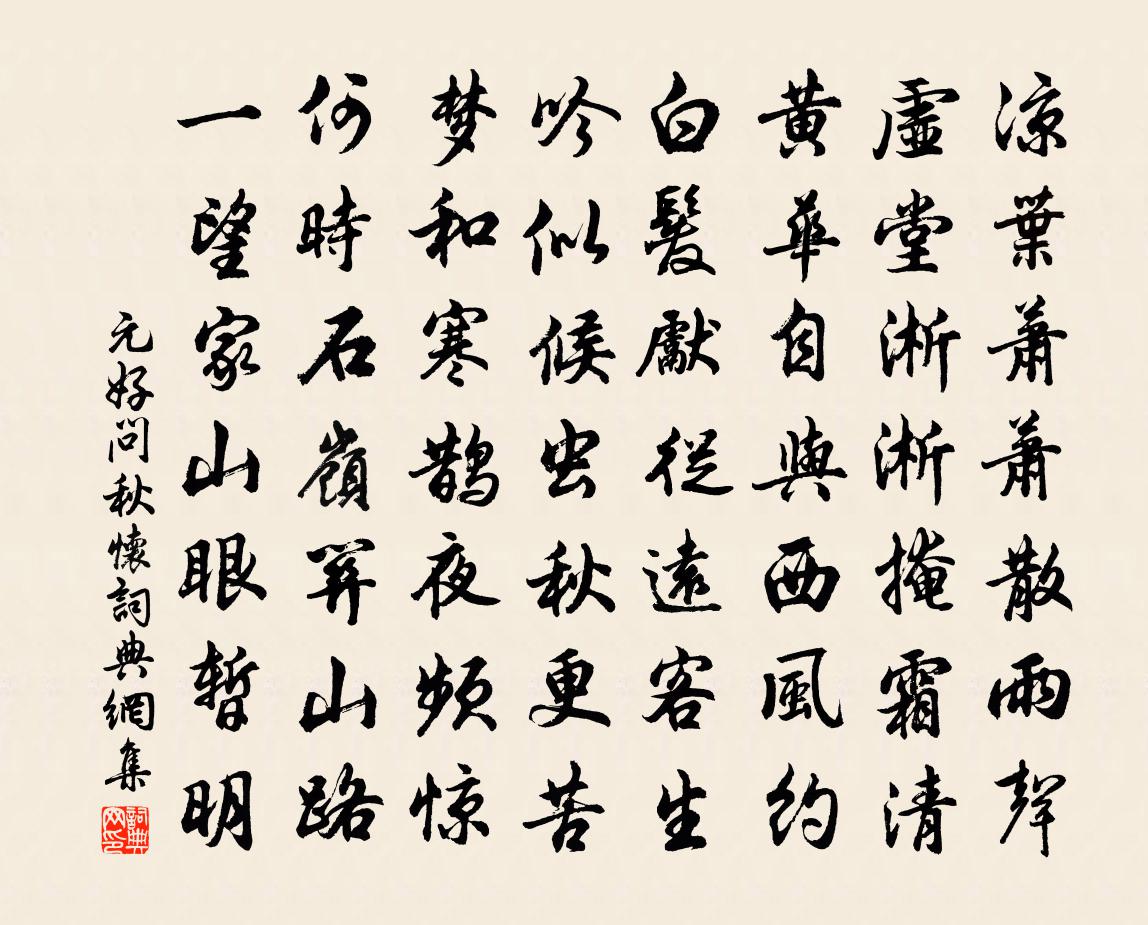 涼葉蕭蕭散雨聲
虛堂淅淅掩霜清
黄華自與西風約
白髮獻從遠客生
吟似候虫秋更苦
梦和寒鵲夜頻惊
何時石嶺關山路
一望家山眼暫明
元好問秋懷詞典網集
詞典网印